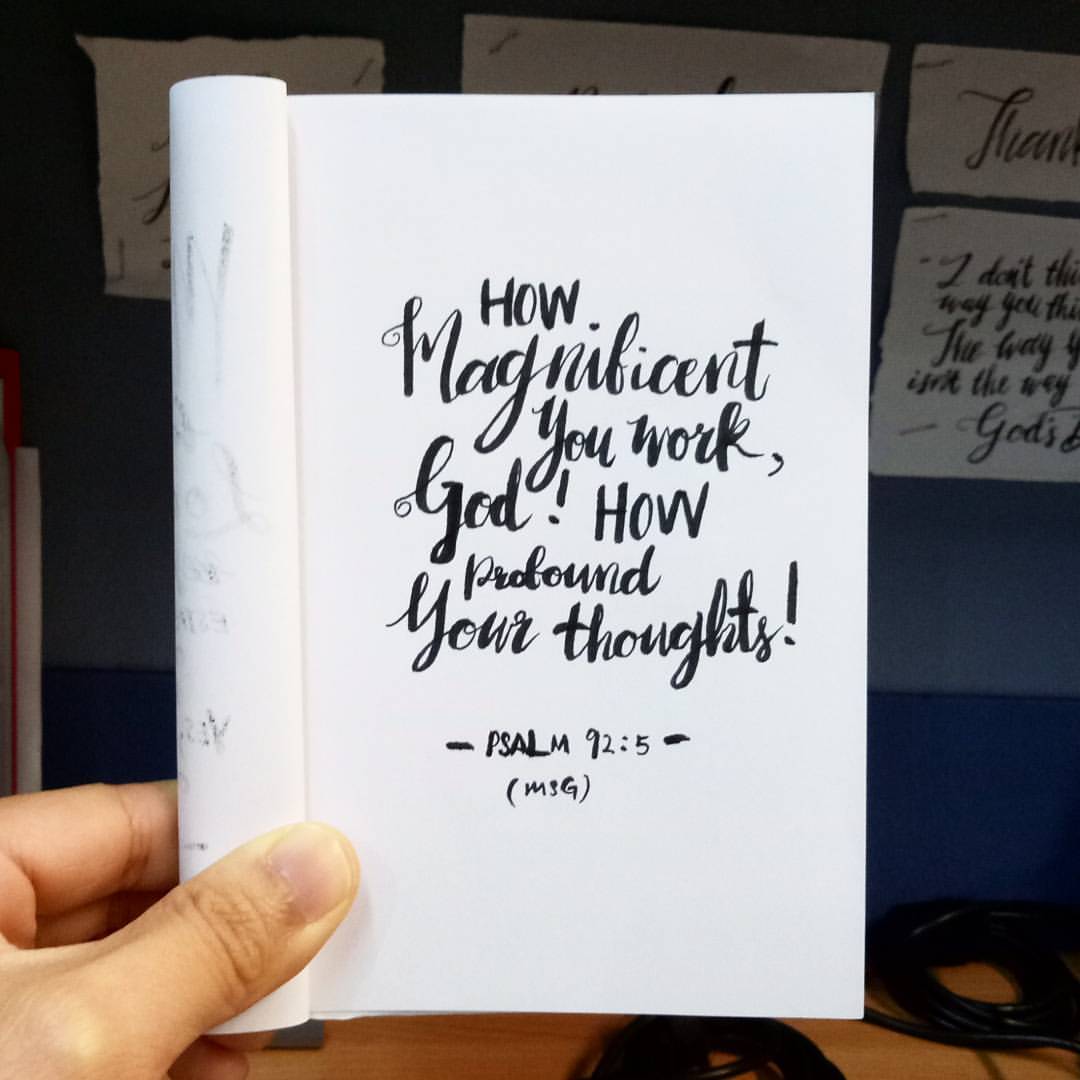 HOW
Magnificent
You work,
God! HOW
profound
Your thoughts!
- PSALM 92:5 -
(MSG)
Thank
"I don't
way you
The way
isn't the way
God's